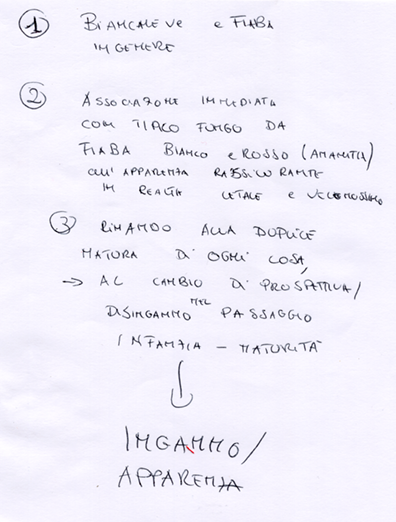 ① BIANCANEVE e FIABA
IN GENERE
② ASSOCIAZIONE IMMEDIATA
CON TIPICO FUNGO DA
FIABA BIANCO e ROSSO (AMANITA)
ALL'APPARENZA RASSICURANTE
IN REALTÀ LETALE e VELENOSISSIMO
③ RIMANDO ALLA DUPLICE
NATURA DI OGNI COSA,
→ AL CAMBIO DI PROSPETTIVA/
DISINGANNO NEL PASSAGGIO
INFANZIA – MATURITÀ
INGANNO/
APPARENZA